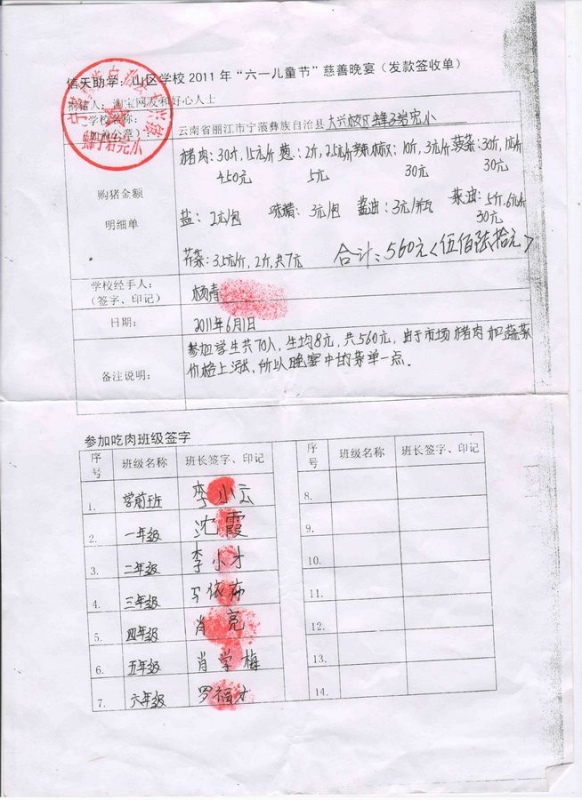 信天助学：山区学校2011年“六一儿童节”慈善晚宴（发款签收单）
捐猪人：淘宝网友和好心人士
学校名称：
（加盖公章）
云南省丽江市宁蒗彝族自治县
购猪金额
明细单
猪肉：30斤，15元/斤 葱：2斤，2.5元/斤 10斤，3元/斤 30斤，1元/斤
450元 5元 30元 30元
盐：2元/包 3元/包 酱油：3元/瓶 菜油：5斤，6元/斤
30元
芹菜：3.5元/斤，2斤，共7元 合计：560元<伍佰陆拾元>
学校经手人：
（签字、印记）
杨青
日期：
2011年6月1日
备注说明：
参加学生共70人，生均8元，共560元，由于市场猪肉加蔬菜
价格上涨，所以晚宴中均算单一点。
参加吃肉班级签字
序号 班级名称 班长签字、印记 序号 班级名称 班长签字、印记
1. 学前班 李小云 8.
2. 一年级 沈霞 9.
3. 二年级 李小才 10.
4. 三年级 11.
5. 四年级 肖亮 12.
6. 五年级 肖学梅 13.
7. 六年级 罗福才 14.